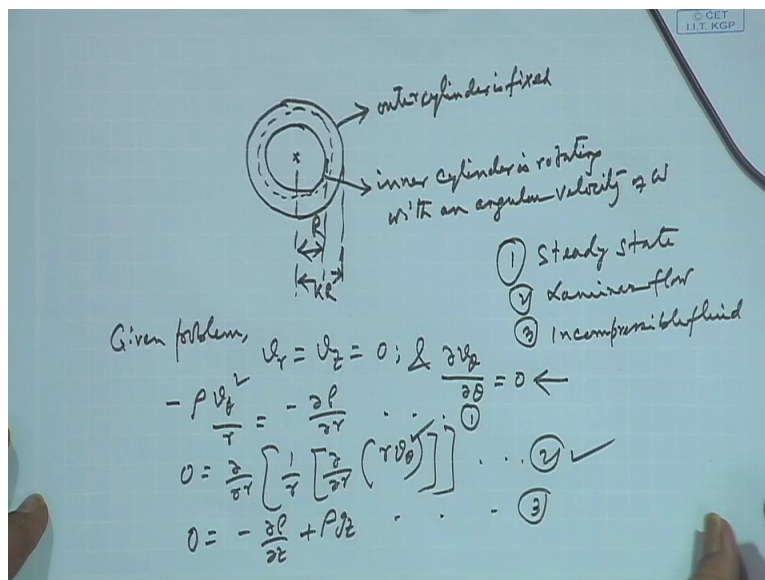 © CET
I.I.T. KGP
outer cylinder is fixed
inner cylinder is rotating
with an angular velocity of ω
R
KR
① Steady state
② Laminar flow
③ Incompressible fluid
Given problem,
υr = υz = 0 ; & ∂υθ/∂θ = 0 ←
- ρ υθ²/r = - ∂P/∂r . . . ①
0 = ∂/∂r [ 1/r [ ∂/∂r ( r υθ ) ] ] . . . ② ✓
0 = - ∂P/∂z + ρ gz . . . ③